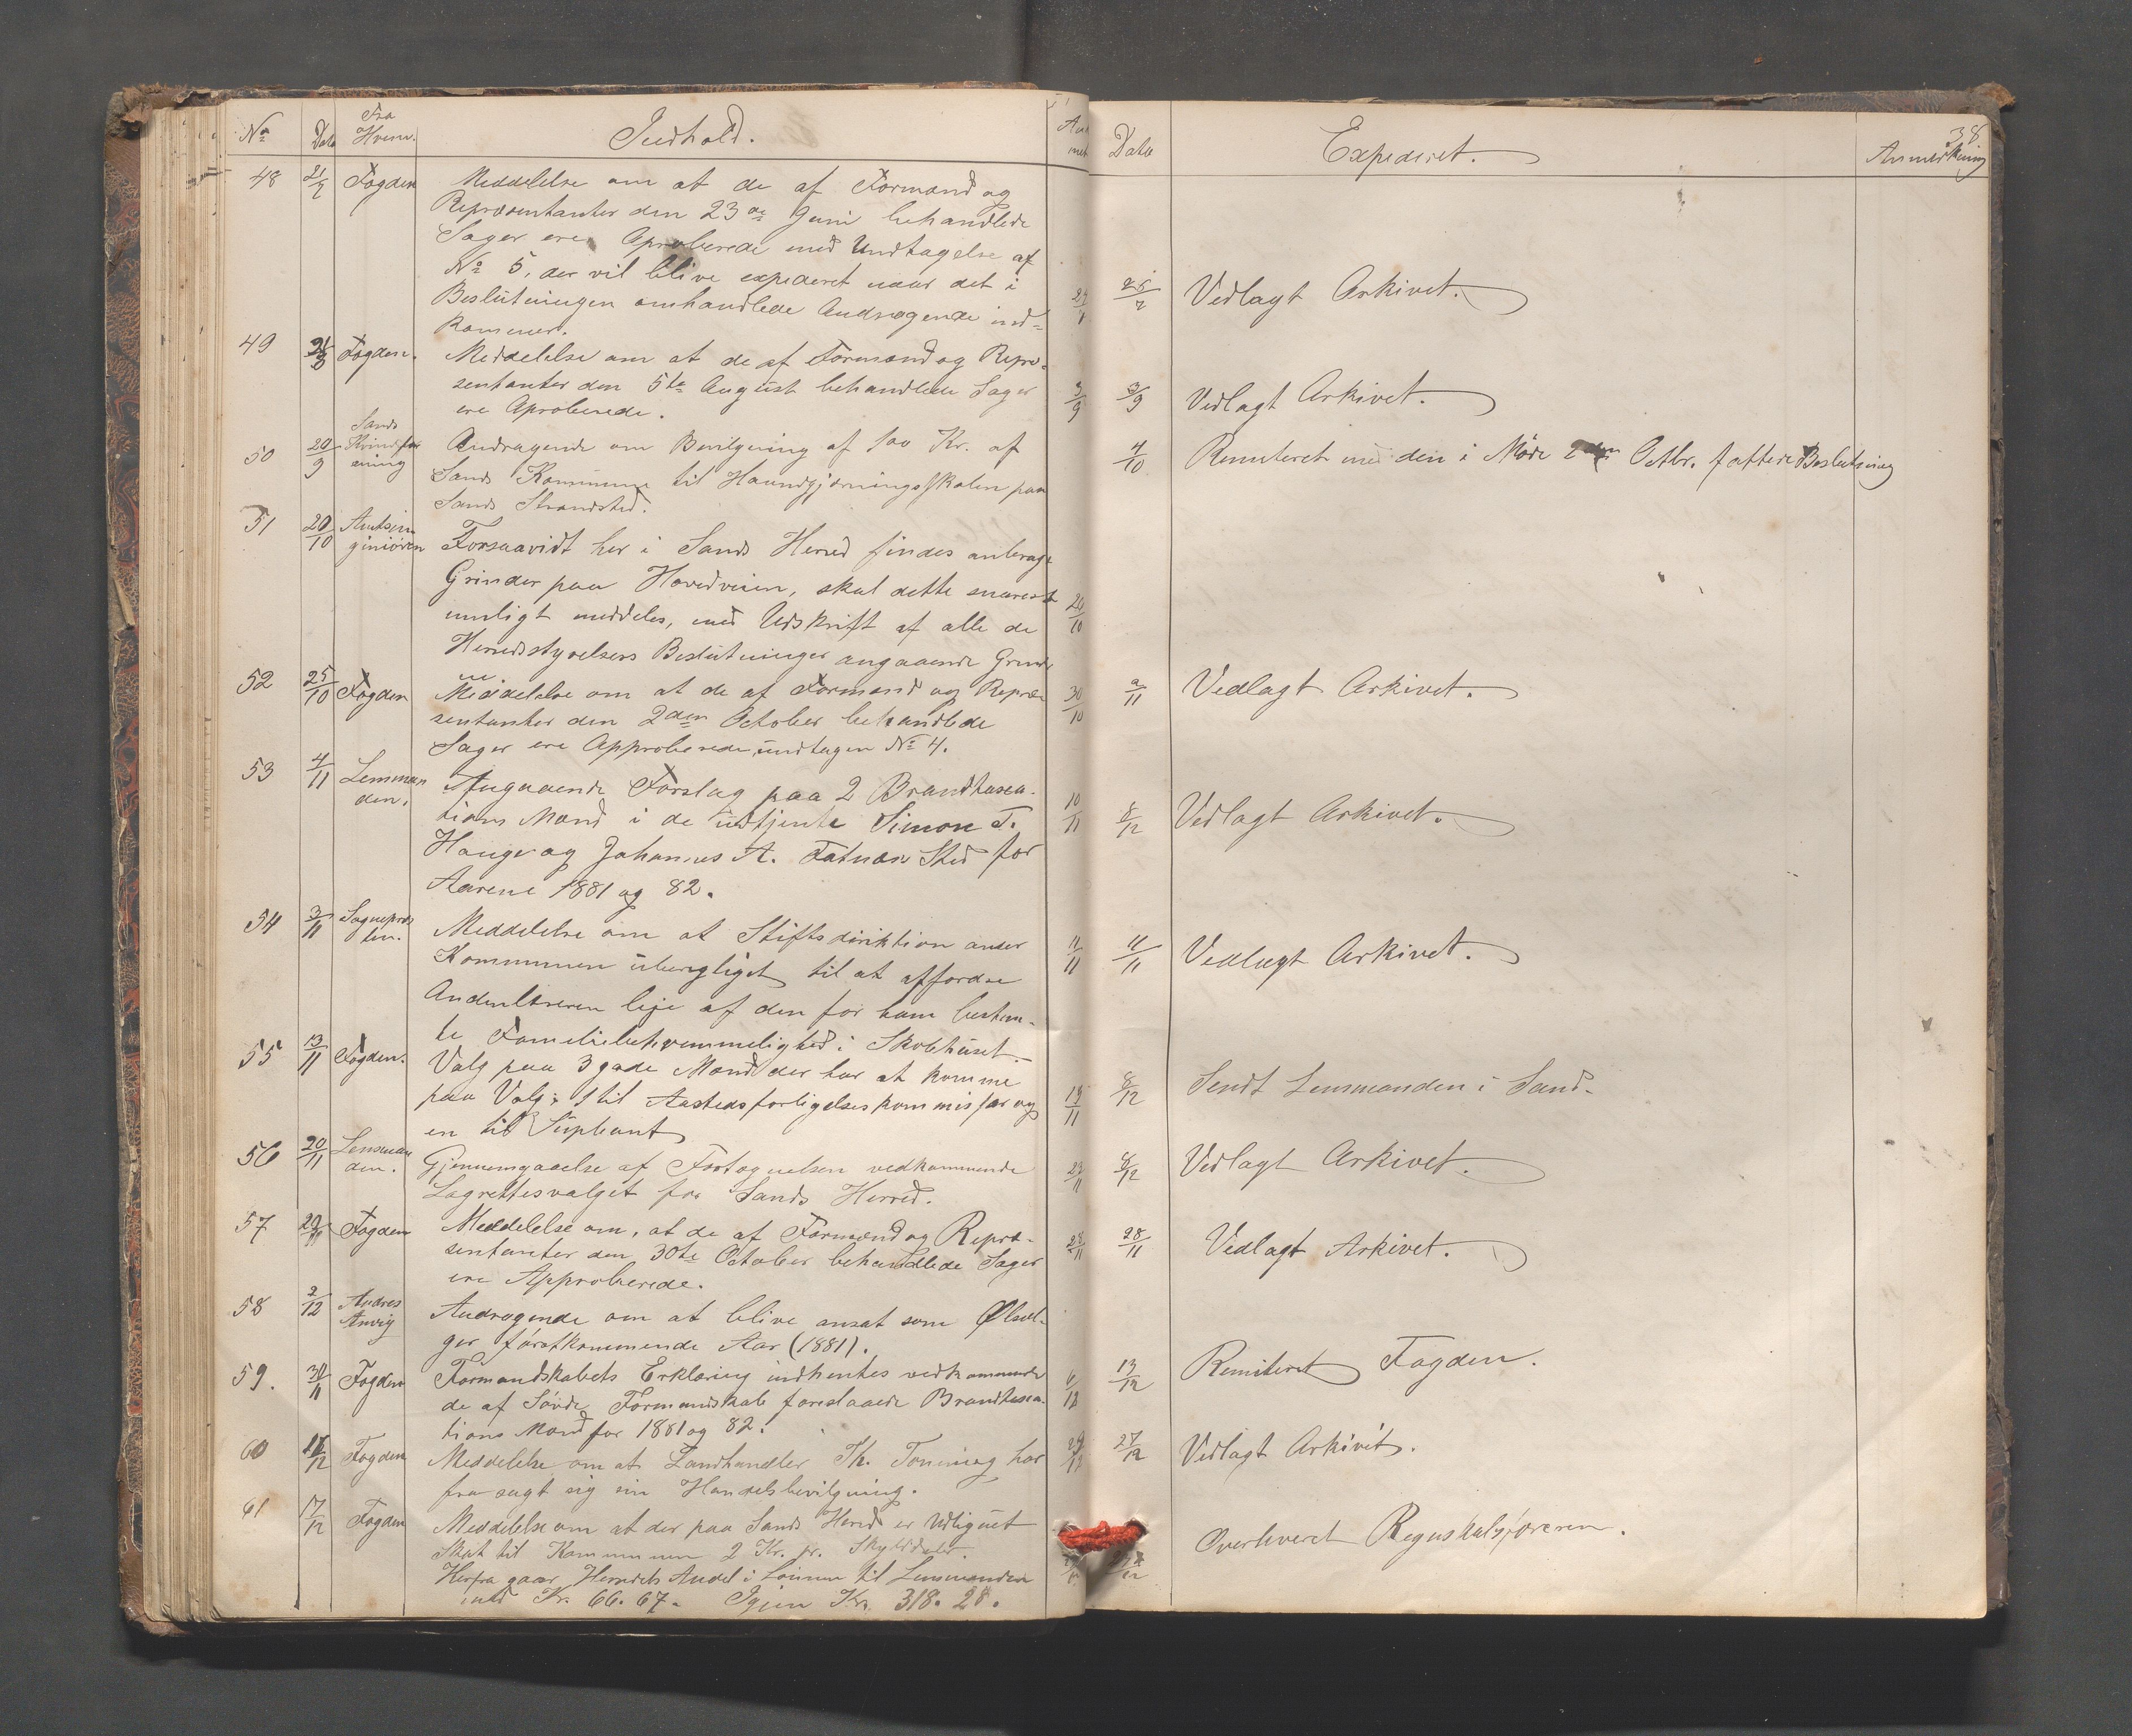 38
No Dato Fra Hvem. Indhold. Dato Expederet. Anmerkning
48 Fogden Meddelelse om at de af Formænd og
Repræsentanter den 23de Juni behandlede
Sager ere Aproberede med Undtagelse af
No 5, der vil blive expederet naar det i
Beslutningen omhandlede Andragende ind-
kommer. 25/7 Vedlagt Arkivet.
49 Fogden. Meddelelse om at de af Formænd og Repræ-
sentanter den 5te August behandlede Sager
ere Aproberede. 3/9 3/9 Vedlagt Arkivet.
50 20/9 Sands Kvindefor ening Andragende om Bevilgning af 100 Kr. af
Sands Kommune til Haandgjerningsskolen paa
Sands Strandsted. 4/10 Remiteret med den i Møde 2den Octbr. fattede Beslutning
51 20/10 Amtsin giniøren Forsaavidt her i Sands Herred findes anbragt
Grinder paa Hovedveien, skal dette snarest
muligt meddeles, med Udskrift af alle de
Herredsstyrelsens Beslutninger angaaende Grinde
ne 24/10
52 25/10 Fogden Meddelelse om at de af Formænd og Repræ
sentanter den 2den October behandlede
Sager ere Approberede, undtagen No 4. 30/10 2/11 Vedlagt Arkivet.
53 4/11 Lensman den. Angaaende Forslag paa 2 Brandtaxa-
tions Mænd i de udtjente Simon T.
Hauge og Johannes A. Fatnæs Sted for
Aarene 1881 og 82. 10/11 8/12 Vedlagt Arkivet.
54 3/11 Sognepræs ten. Meddelelse om at Stiftsdirektion anser
Kommunen uberegliget til at affordre
Andenlæreren leje af den for ham bestem-
te Familiebekvemmelighed i Skolehuset. 11/11 11/11 Vedlagt Arkivet.
55 13/11 Fogden. Valg paa 3 gode Mænd der har at komme
paa Valg; 1 til Aastedsforligelseskommissær og
en til Supleant 19/11 8/12 Sendt Lensmanden i Sand.
56 20/11 Lensman den. Gjennemgaaelse af Fortegnelsen vedkommende
Lagrettesvalget for Sands Herred. 23/11 8/12 Vedlagt Arkivet.
57 Fogden Meddelelse om, at de af Formænd og Repræ-
sentanter den 30te October behandlede Sager
ere Approberede. 28/11 28/11 Vedlagt Arkivet.
58 2/12 Andres Andragende om at blive ansat som Ølsæl-
ger førstkommende Aar (1881).
59. 30/11 Fogden Formandskabets Erklæring indhentes vedkommende
de af Søvde Formandskab foreslaaede Brandtaxa-
tions Mænd for 1881 og 82. 6/12 13/12 Remiteret Fogden.
60 17/12 Fogden Meddelelse om at Landhandler Th. Tonning har
fra sagt sig sin Handelsbevilgning. 27/12 Vedlagt Arkivet.
61 17/12 Fogden Meddelelse om at der paa Sands Herred er Udlignet
Skat til Kommunen 2 Kr. pr. Skylddaler.
Herfra gaar Herredets Andel i Lønnen til Lensmanden
med Kr. 66.67. Igjen Kr. 318.28. Overleveret Regnskabsføreren.